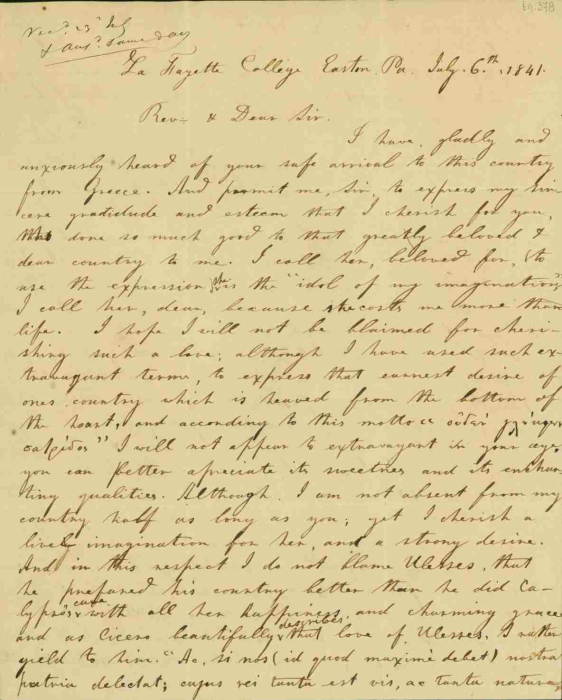 Rec.d 23.d July
& ans.d same day
La Fayette College Easton Pa. July. 6.th 1841.
Rev- & Dear Sir.
I have, gladly and
anxiously heard of your safe arrival to this country
from Greece. And permit me, Sir, to express my sin
cere gratidude and esteem that I cherish for you,
who done so much good to that greatly beloved &
dear country to me. I call her, beloved for, (to
use the expression) she is the "idol of my imagination"
I call her, dear, because she costs me more than
life. I hope I will not be blaimed for cheri-
shing such a love; although I have used such ex-
travagant terms, to express that earnest desire of
ones country which is heaved from the bottom of
the heart; and according to this motto οὐδέν γλύκιον
πατρίδος" I will not appear to extravagant in your eye,
you can better apreciate its sweetnes and its enchan-
ting qualities. Although I am not absent from my
country half as long as you; yet I cherish a
lively imagination for her, and a strong desire.
And in this respect I do not blame Ulesses, that
he prefared his country better than he did Ca-
lypso's cave with all her happiness, and charming grace
and as Cicero beautifully describes that love of Ulesses. I rather
yield to him. "Ac, si nos (id quod maximè debet) nostra
patria delectat; cujus rei tanta est vis, ac tanta natura,